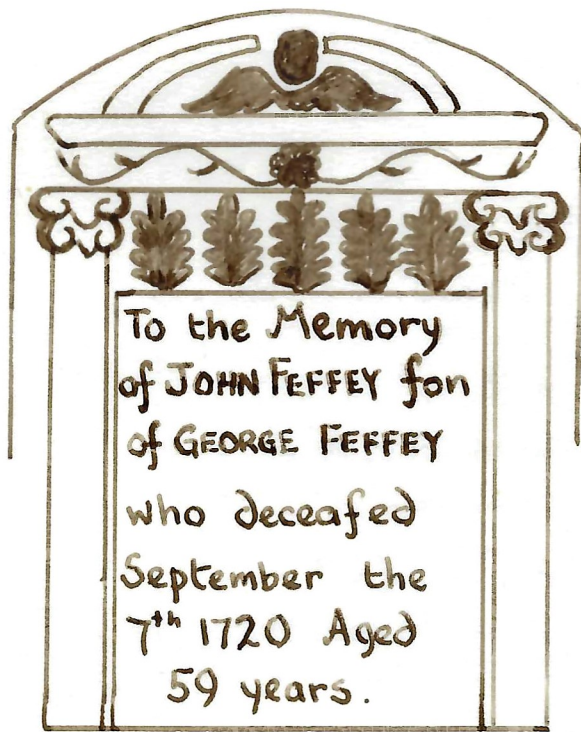 To the Memory
of JOHN FEFFEY fon
of GEORGE FEFFEY
who deceafed
September the
7th 1720 Aged
59 years.